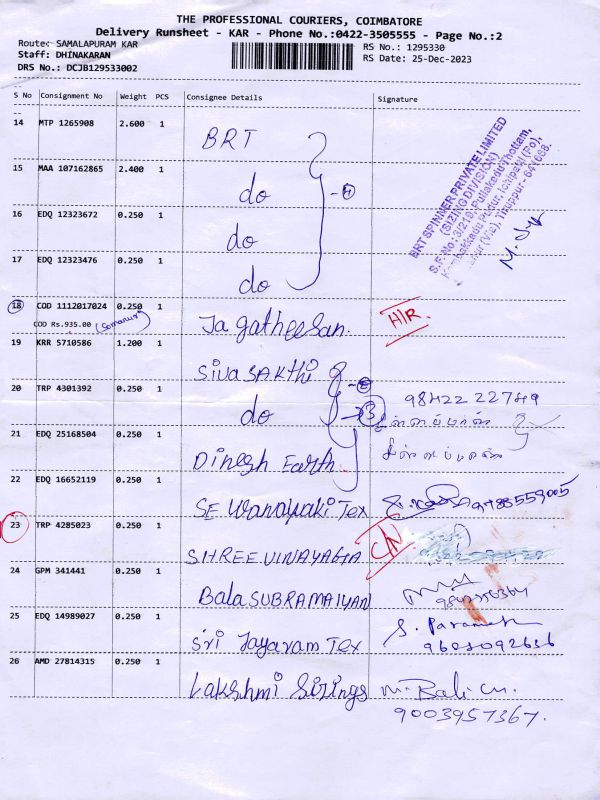 THE PROFESSIONAL COURIERS, COIMBATORE
Delivery Runsheet - KAR - Phone No.:0422-3505555 - Page No.:2
Route: SAMALAPURAM KAR
Staff: DHINAKARAN
DRS No.: DCJB129533002
RS No.: 1295330
RS Date: 25-Dec-2023
S No Consignment No Weight PCS Consignee Details Signature
14 MTP 1265908 2.600 1 BRT
15 MAA 107162865 2.400 1 do
16 EDQ 12323672 0.250 1 do
17 EDQ 12323476 0.250 1 do
BRT SPINNER PRIVATE LIMITED
(SIZING DIVISION)
S.F.No: 3/210, Pullakadu Thottam,
18 COD 1112017024 0.250 1 Jagatheesan. H/R.
COD Rs.935.00 (Somanur)
19 KRR 5710586 1.200 1 Siva SAKthi
20 TRP 4301392 0.250 1 do 3 98422 22749
21 EDQ 25168504 0.250 1 Dinesh Earth
22 EDQ 16652119 0.250 1 SE Wanayaki Tex
23 TRP 4285023 0.250 1 SHREE VINAYAGA C/N
24 GPM 341441 0.250 1 Bala SUBRAMAIYAN
25 EDQ 14989027 0.250 1 Sri Jayaram Tex
26 AMD 27814315 0.250 1 Lakshmi Sizings
9003957367.